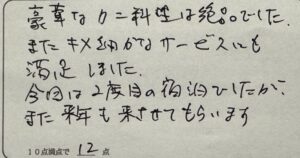 豪華なカニ料理は絶品でした.
またキメ細かなサービスにも
満足しました.
今回は2度目の宿泊でしたが、
また来年も来させてもらいます
10点満点で 12 点